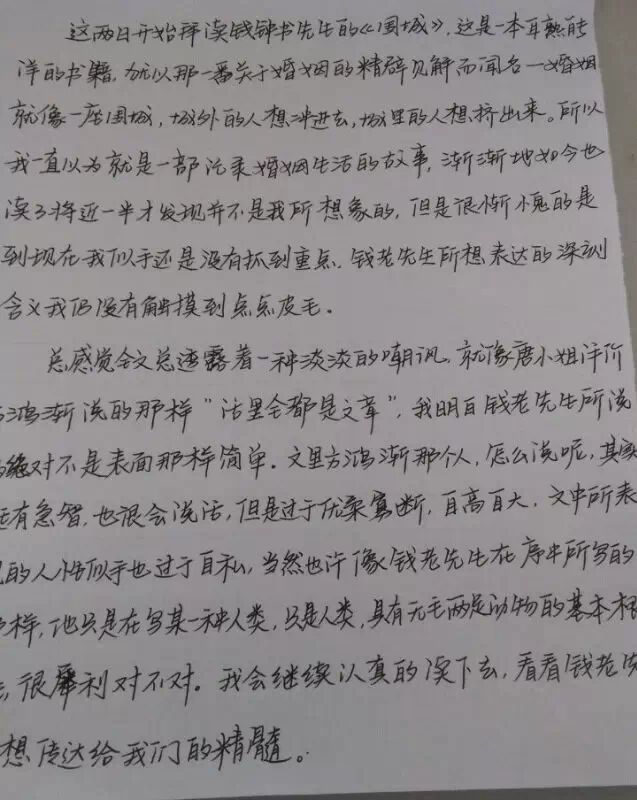 这两日开始拜读钱钟书先生的《围城》,这是一本耳熟能
洋的书籍,尤以那一番关于婚姻的精辟见解而闻名一婚姻
就像一座围城,城外的人想冲进去,城里的人想挤出来。所以
我一直以为就是一部记录婚姻生活的故事,渐渐地如今也
读了将近一半才发现并不是我所想象的,但是很惭愧的是
到现在我似乎还是没有抓到重点,钱老先生所想表达的深刻
含义我仍没有触摸到点点皮毛。
总感觉全文总透露着一种淡淡的嘲讽,就像唐小姐评价
鸿渐说的那样"话里全都是文章",我明白钱老先生所说
绝对不是表面那样简单。文里方鸿渐那个人,怎么说呢,其实
还有急智,也很会说话,但是过于优柔寡断,自高自大,文中所表
的人性似乎也过于自私,当然也许像钱老先生在序中所写的
那样,他只是在写某一种人类,只是人类,具有无毛两足动物的基本根
很犀利对不对。我会继续认真的读下去,看看钱老先
想传达给我们的精髓。